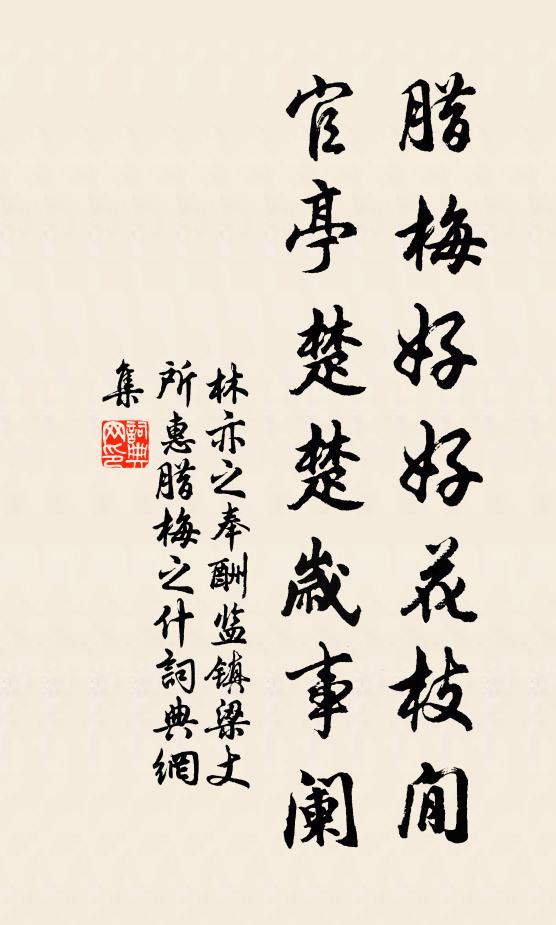 腊梅好好花枝閒
官亭楚楚歲事阑
林亦之奉酬监镇梁丈
所惠腊梅之什詞典網
集
詞典网印